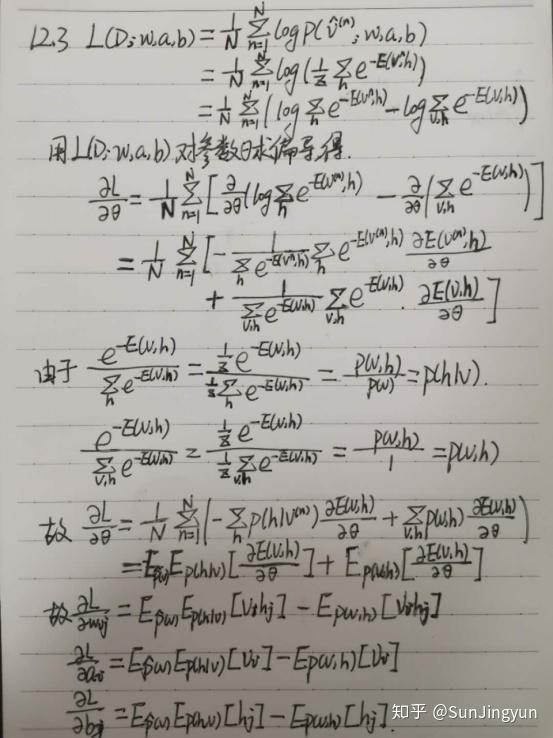 12.3 L(D;w,a,b) = 1/N Σ_{n=1}^{N} log P(v̂^(n); w,a,b)
= 1/N Σ_{n=1}^{N} log(1/Z Σ_h e^{-E(v^n,h)})
= 1/N Σ_{n=1}^{N} (log Σ_h e^{-E(v^n,h)} - log Σ_{v,h} e^{-E(v,h)})
用L(D;w,a,b)对参数θ求偏导得.
∂L/∂θ = 1/N Σ_{n=1}^{N} [∂/∂θ(log Σ_h e^{-E(v^(n),h)} - ∂/∂θ(Σ_{v,h} e^{-E(v,h)})]
= 1/N Σ_{n=1}^{N} [- 1/(Σ_h e^{-E(v^n,h)}) Σ_h e^{-E(v^(n),h)} ∂E(v^(n),h)/∂θ
+ 1/(Σ_{v,h} e^{-E(v,h)}) Σ_{v,h} e^{-E(v,h)} · ∂E(v,h)/∂θ]
由于 e^{-E(v,h)}/(Σ_h e^{-E(v,h)}) = (1/Z e^{-E(v,h)})/(1/Z Σ_h e^{-E(v,h)}) = P(v,h)/P(v) = p(h|v).
e^{-E(v,h)}/(Σ_{v,h} e^{-E(v,h)}) = (1/Z e^{-E(v,h)})/(1/Z Σ_{v,h} e^{-E(v,h)}) = P(v,h)/1 = p(v,h)
故 ∂L/∂θ = 1/N Σ_{n=1}^{N} (-Σ_h p(h|v^(n)) ∂E(v,h)/∂θ + Σ_{v,h} p(v,h) ∂E(v,h)/∂θ)
= E_{p̂(v)} E_{p(h|v)} [∂E(v,h)/∂θ] + E_{p(v,h)} [∂E(v,h)/∂θ]
故 ∂L/∂w_{ij} = E_{p̂(v)} E_{p(h|v)} [v_i h_j] - E_{p(v,h)} [v_i h_j]
∂L/∂a_i = E_{p̂(v)} E_{p(h|v)} [v_i] - E_{p(v,h)} [v_i]
∂L/∂b_j = E_{p̂(v)} E_{p(h|v)} [h_j] - E_{p(v,h)} [h_j].
知乎 @SunJingyun